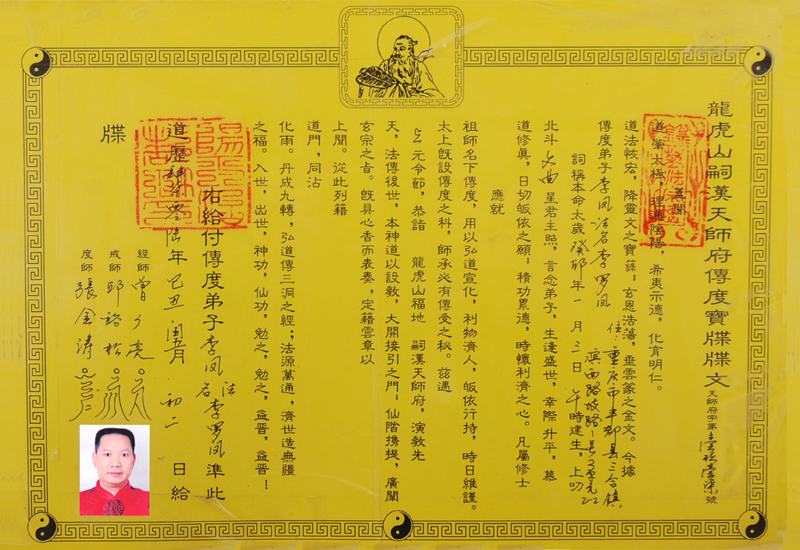 龍虎山嗣漢天師府傳度寶牒牒文
天師府字第 號
道肇太極，理運陰陽，希夷示德，化育明仁。
道法歸宏，降靈文之寶籙；玄恩浩蕩，垂雲篆之金文。今據
傳度弟子李凤 法名李罗凤 住：重庆市丰都县三合镇
滨西路
詞稱本命太歲癸卯年一月三日午時建生，上叩
北斗 星君主照，言念弟子，生逢盛世，幸際升平，慕
道修真，日切皈依之願；積功累德，時懷利濟之心。凡屬修士
應就
祖師名下傳度，用以弘道宣化，利物濟人，皈依行持，時日維謹。
太上既設傳度之科，師承必有傳受之秘。茲遇
上元令節，恭詣 龍虎山福地 嗣漢天師府，演教先
天，法傳後世，本神道以設教，大開接引之門；仙階携提，廣闡
玄宗之旨。既具心香而表奏，定籍雲章以
上聞。從此列籍
道門；同沾
化雨。丹成九轉，弘道傳三洞之經；法源萬通，濟世造無疆
之福。入世，出世，神功，仙功，勉之，勉之，益晋，益晋！
右給付傳度弟子李凤 法名李罗凤 準此
道歷 年己丑 闰五月 初二 日給
牒
經師
戒師 邱裕松
度師 張金涛